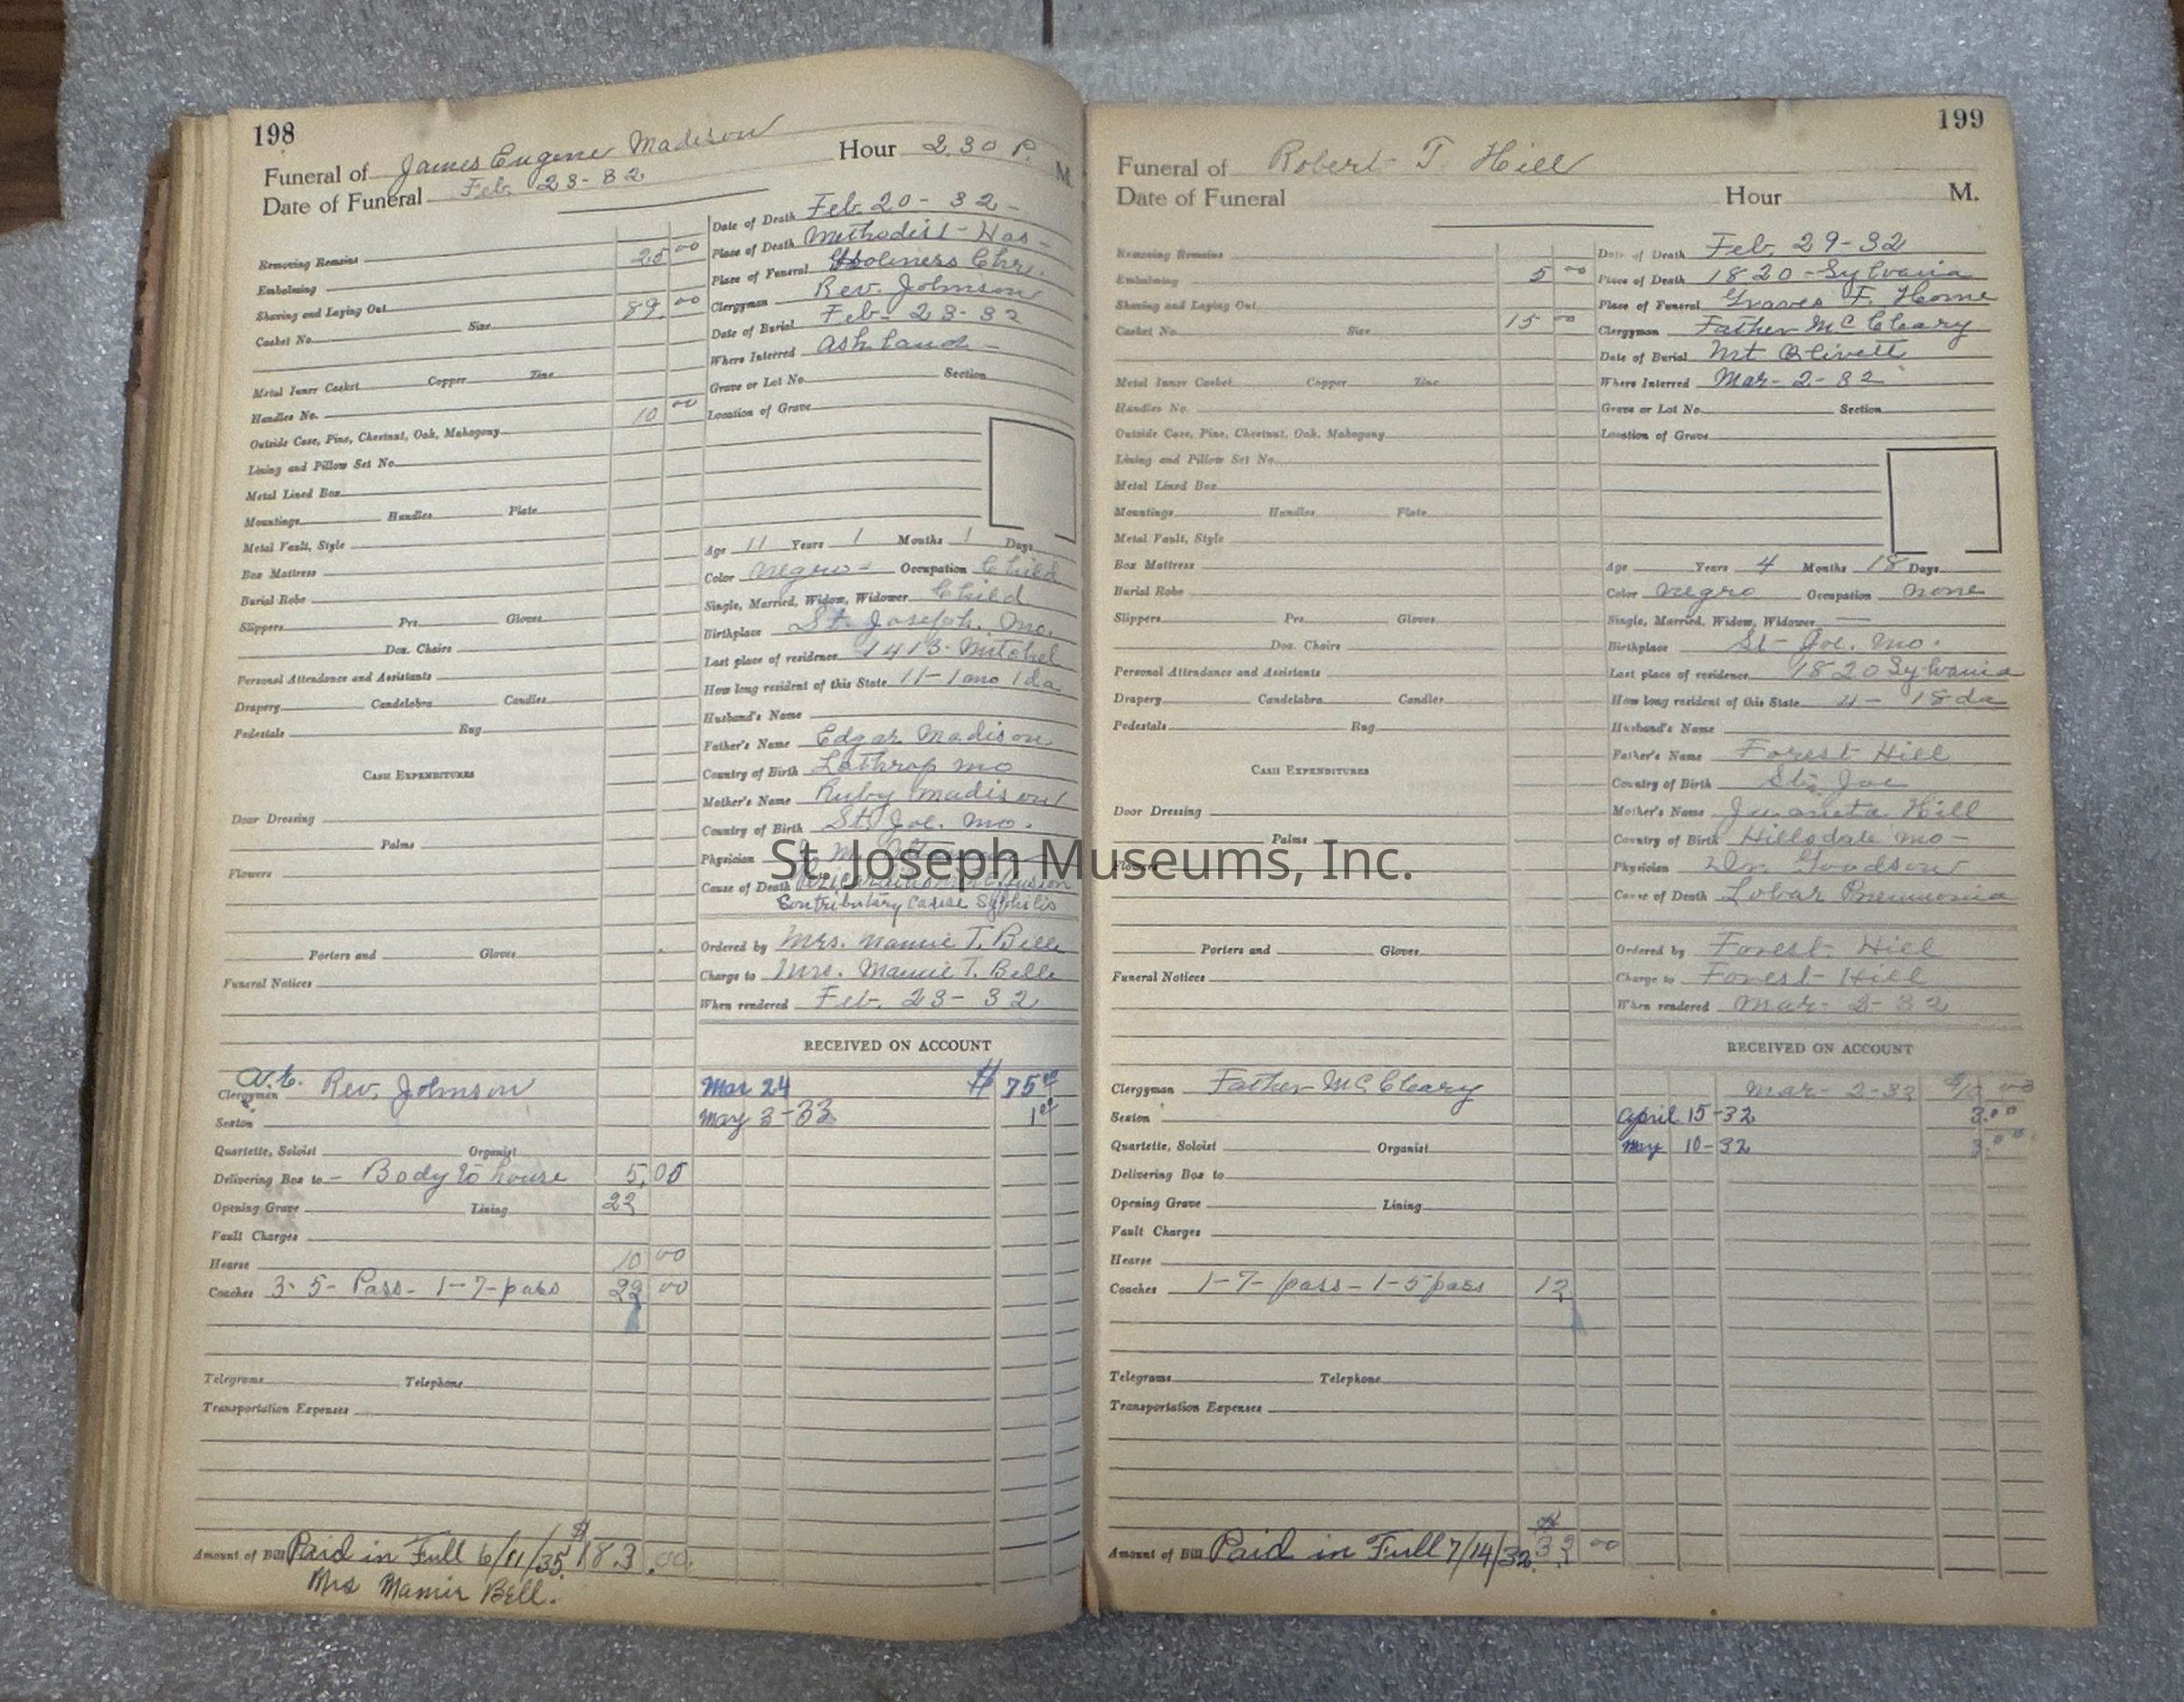 198
Funeral of James Eugene Madison Hour 2.30 P. M.
Date of Funeral Feb 23-32
Removing Remains
Embalming 25 00
Shaving and Laying Out
Casket No. Size 89. 00
Metal Inner Casket Copper Zinc
Handles No.
Outside Case, Pine, Chestnut, Oak, Mahogany 10 00
Lining and Pillow Set No.
Metal Lined Box
Mountings Handles Plate
Metal Vault, Style
Box Mattress
Burial Robe
Slippers Prs. Gloves
Doz. Chairs
Personal Attendance and Assistants
Drapery Candelabra Candles
Pedestals Rug
CASH EXPENDITURES
Door Dressing
Palms
Flowers
Porters and Gloves
Funeral Notices
Clergyman Rev. Johnson
Sexton
Quartette, Soloist Organist
Delivering Box to - Body to house 5.00
Opening Grave Lining 22
Vault Charges
Hearse 10 00
Coaches 3-5-Pass- 1-7-pass 22 00
Telegrams Telephone
Transportation Expenses
Amount of Bill Paid in Full 6/11/35 $183.00
Mrs Mamie Bell.
Date of Death Feb 20-32-
Place of Death Methodist-Hos-
Place of Funeral Holiness Chr.
Clergyman Rev. Johnson
Date of Burial Feb-23-32
Where Interred Ashland-
Grave or Lot No. Section
Location of Grave
Age 11 Years 1 Months 1 Days
Color Negro- Occupation Child
Single, Married, Widow, Widower Child
Birthplace St. Joseph. Mo.
Last place of residence 1413-Mitchel
How long resident of this State 11-1mo 1da
Husband's Name
Father's Name Edgar Madison
Country of Birth Lathrop Mo
Mother's Name Ruby Madison
Country of Birth St. Joe. Mo.
Physician
Cause of Death Pericarditis effusion
Contributary Cause Syphilis
Ordered by Mrs. Mamie T. Belle
Charge to Mrs. Mamie T. Belle
When rendered Feb. 23-32
RECEIVED ON ACCOUNT
Mar 24 $75 00
May 3-33 1 00
199
Funeral of Robert T Hill
Date of Funeral Hour M.
Removing Remains
Embalming 5 00
Shaving and Laying Out
Casket No. Size 15 00
Metal Inner Casket Copper Zinc
Handles No.
Outside Case, Pine, Chestnut, Oak, Mahogany
Lining and Pillow Set No.
Metal Lined Box
Mountings Handles Plate
Metal Vault, Style
Box Mattress
Burial Robe
Slippers Prs. Gloves
Doz. Chairs
Personal Attendance and Assistants
Drapery Candelabra Candles
Pedestals Rug
CASH EXPENDITURES
Door Dressing
Palms
Flowers
Porters and Gloves
Funeral Notices
Clergyman Father McCleary
Sexton
Quartette, Soloist Organist
Delivering Box to
Opening Grave Lining
Vault Charges
Hearse
Coaches 1-7-pass-1-5pass 12
Telegrams Telephone
Transportation Expenses
Amount of Bill Paid in Full 7/14/32. $32 00
Date of Death Feb. 29-32
Place of Death 1820-Sylvania
Place of Funeral Graves F. Home
Clergyman Father McCleary
Date of Burial Mt Olivett
Where Interred Mar-2-32
Grave or Lot No. Section
Location of Grave
Age Years 4 Months 18 Days
Color Negro Occupation None
Single, Married, Widow, Widower
Birthplace St-Joe. Mo.
Last place of residence 1820 Sylvania
How long resident of this State 4- 18da
Husband's Name
Father's Name Forest Hill
Country of Birth St. Joe
Mother's Name Juanita Hill
Country of Birth Hillsdale Mo-
Physician Dr. Goodson
Cause of Death Lobar Pneumonia
Ordered by Forest-Hill
Charge to Forest-Hill
When rendered Mar-2-32
RECEIVED ON ACCOUNT
Mar-2-32
April 15-32 3.00
May 10-32 3.00
St. Joseph Museums, Inc.